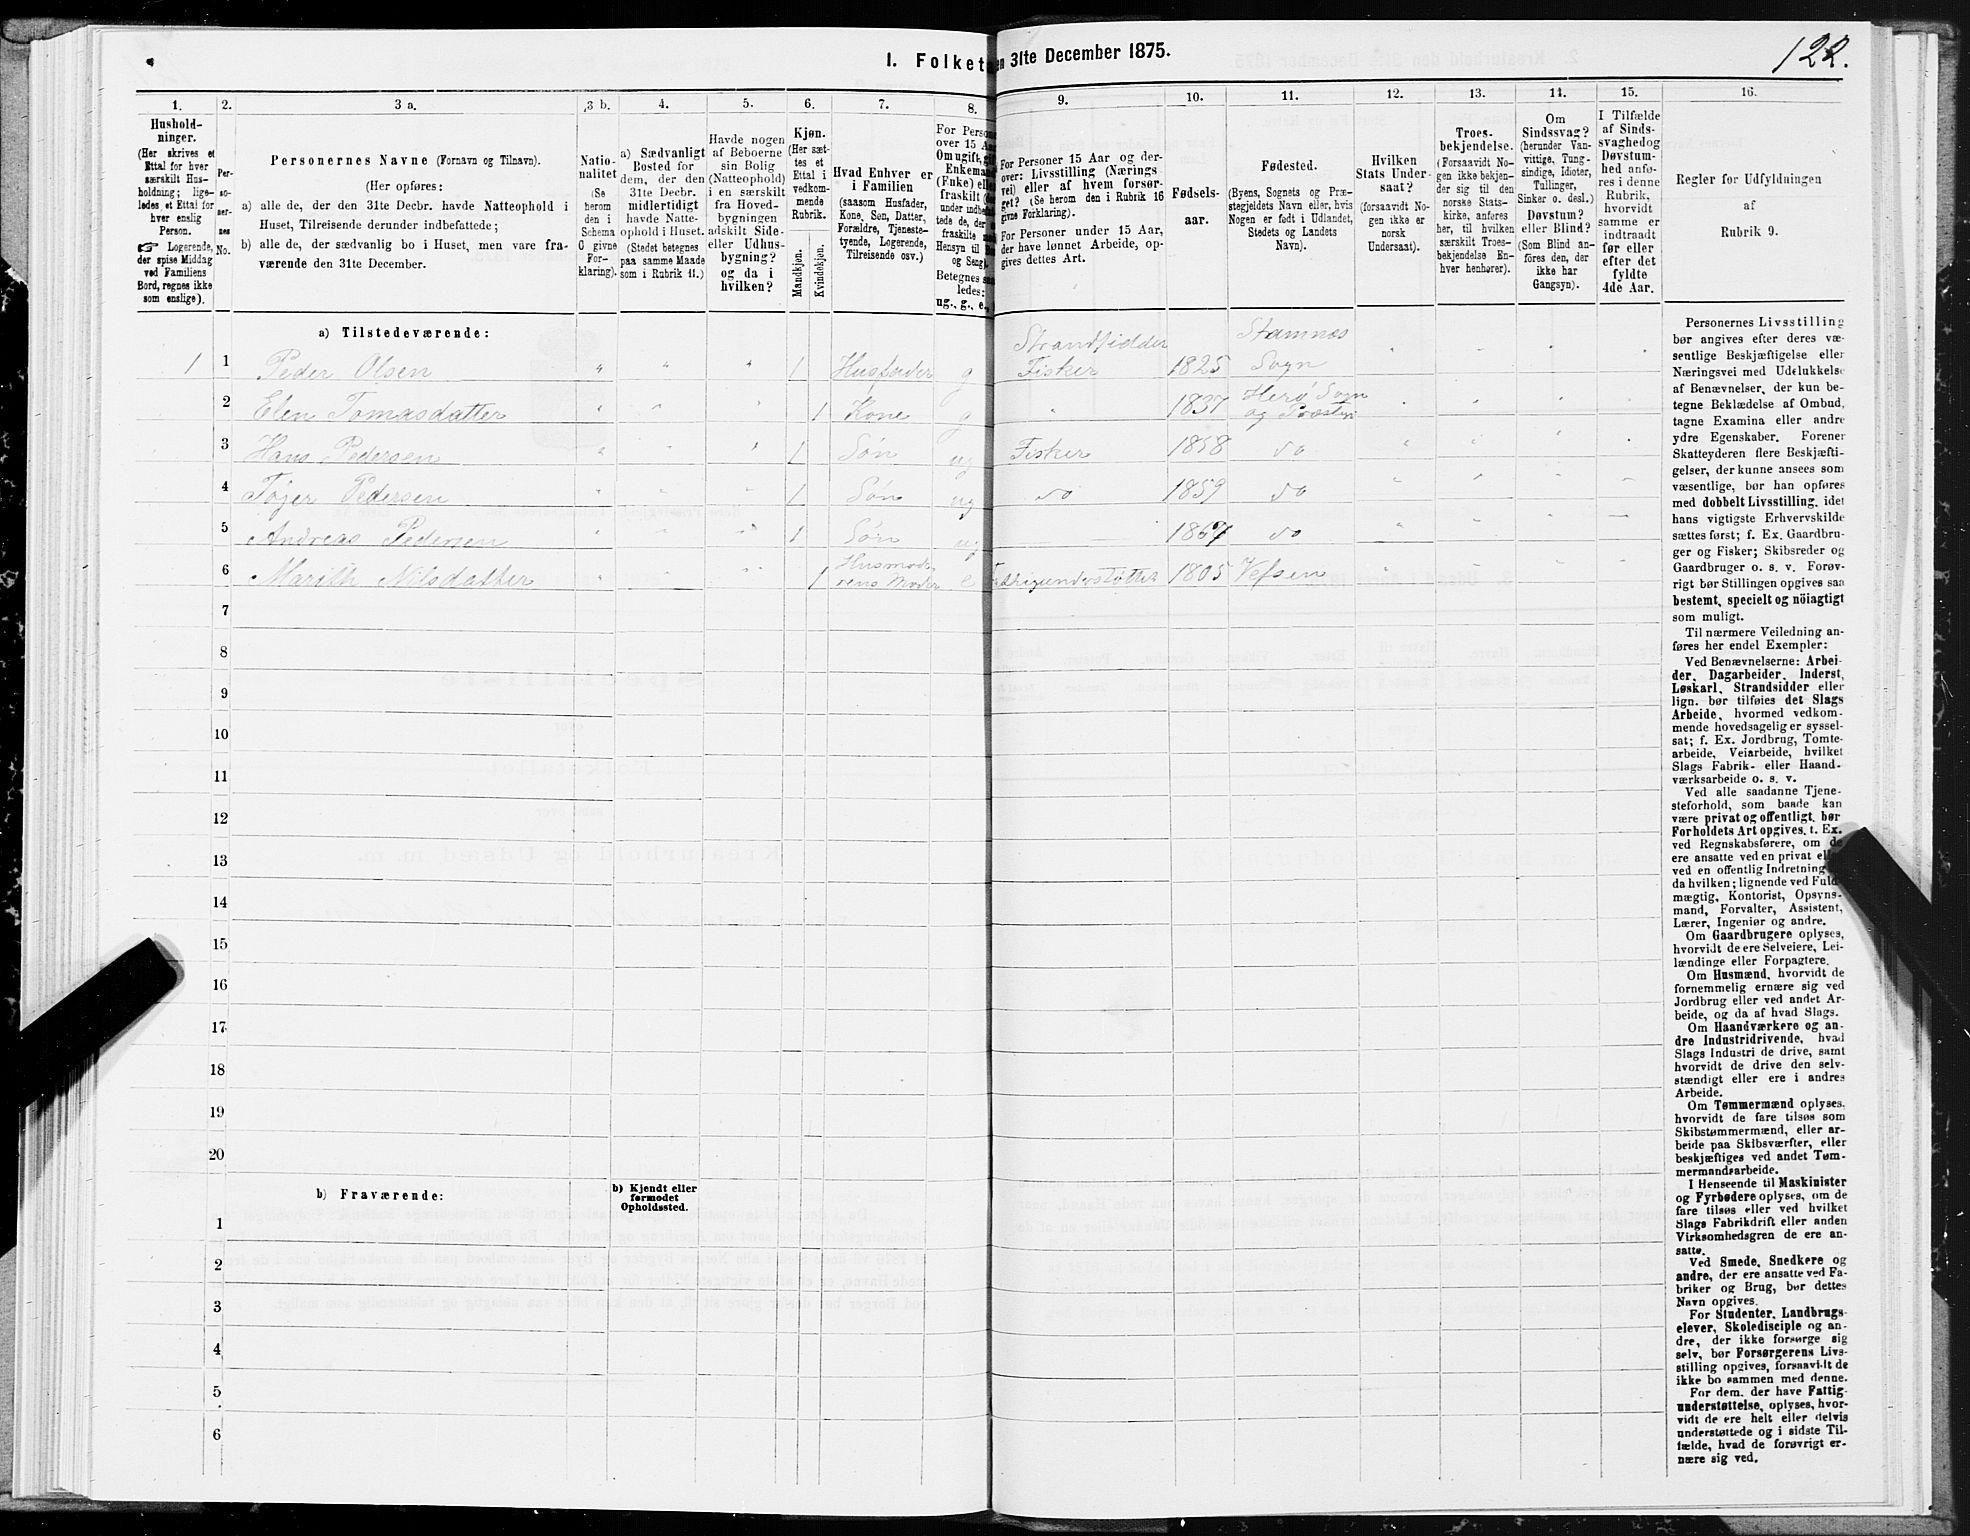 I. Folket
en 31te December 1875.
122.
1.
2.
3 a.
3 b.
4.
5.
6.
7.
8.
9.
10.
11.
12.
13.
14.
15.
16.
Hushold-
ninger.
(Her skrives et
Ettal for hver
særskilt Hus-
holdning; lige-
ledes et Ettal for
hver enslig
Person.
☞ Logerende,
der spise Middag
ved Familiens
Bord, regnes ikke
som enslige).
Per-
so-
ner-
nes
No.
Personernes Navne (Fornavn og Tilnavn).
(Her opføres:
a) alle de, der den 31te Decbr. havde Natteophold i
Huset, Tilreisende derunder indbefattede;
b) alle de, der sædvanlig bo i Huset, men vare fra-
værende den 31te December.
Natio-
nalitet
(Se
herom
den i
Schema
O givne
For-
klaring).
a) Sædvanligt
Bosted for
dem, der den
31te Decbr.
midlertidigt
havde Natte-
ophold i Huset.
(Stedet betegnes
paa samme Maade
som i Rubrik 11.)
Havde nogen
af Beboerne
sin Bolig
(Natteophold)
i en særskilt
fra Hoved-
bygningen
adskilt Side-
eller Udhus-
bygning?
og da i
hvilken?
Kjøn.
(Her sæt-
tes et
Ettal i
vedkom-
mende
Rubrik.
Mandkjøn.
Kvindekjøn.
Hvad Enhver er
i Familien
(saasom Husfader,
Kone, Søn, Datter,
Forældre, Tjeneste-
tyende, Logerende,
Tilreisende osv.)
For Persone
over 15 Aa
Om ugift, gif
Enkema
(Enke) elle
fraskilt (
under indbe
tede de, der
fraskilte
Hensyn til B
og Seng).
Betegnes saa
ledes:
ug., g., e.,
For Personer 15 Aar og der-
over: Livsstilling (Nærings
vei) eller af hvem forsør-
get? (Se herom den i Rubrik 16
givne Forklaring).
For Personer under 15 Aar,
der have lønnet Arbeide, op-
gives dettes Art.
Fødsels-
aar.
Fødested.
(Byens, Sognets og Præ-
stegjeldets Navn eller, hvis
Nogen er født i Udlandet,
Stedets og Landets
Navn).
Hvilken
Stats Under-
saat?
(forsaavidt No-
gen ikke er
norsk
Undersaat).
Troes-
bekjendelse.
(Forsaavidt No-
gen ikke bekjen-
der sig til den
norske Stats-
kirke, anføres
her, til hvilken
særskilt Troes-
bekjendelse En-
hver henhører).
Om
Sindssvag?
(herunder Van-
vittige, Tung-
sindige, Idioter,
Tullinger,
Sinker o. desl.)
Døvstum?
eller Blind?
(Som Blind an-
føres den, der
ikke har
Gangsyn).
I Tilfælde
af Sinds-
svaghed og
Døvstum-
hed anfø-
res i denne
Rubrik,
hvorvidt
samme er
indtraadt
før eller
efter det
fyldte
4de Aar.
Regler for Udfyldningen
af
Rubrik 9.
a) Tilstedeværende:
1 1 Peder Olsen " " " 1 Husfader g Strandsidder Fisker 1825 Stamnes Sogn
2 Elen Tomasdatter " " " 1 Kone g " 1837 Herø Sogn og Præstgj
3 Hans Pedersen " " " 1 Søn ug Fisker 1858 do
4 Tøjer Pedersen " " " 1 Søn ug do 1859 do
5 Andreas Pedersen " " " 1 Søn ug 1867 do
6 Marith Nilsdatter " " " 1 Husmode- rens Moder e Fattigunderstøttet 1805 Vefsen
7
8
9
10
11
12
13
14
15
16
17
18
19
20
b) Fraværende:
b) Kjendt eller
formodet
Opholdssted.
1
2
3
4
5
6
Personernes Livsstilling
bør angives efter deres væ-
sentlige Beskjæftigelse eller
Næringsvei med Udelukkelse
af Benævnelser, der kun be-
tegne Beklædelse af Ombud,
tagne Examina eller andre
ydre Egenskaber. Forener
Skatteyderen flere Beskjæfti-
gelser, der kunne ansees som
væsentlige, bør han opføres
med dobbelt Livsstilling, idet
hans vigtigste Erhvervskilde
sættes først; f. Ex. Gaardbru-
ger og Fisker; Skibsreder og
Gaardbruger o. s. v. Forøv-
rigt bør Stillingen opgives saa
bestemt, specielt og nöiagtigt
som muligt.
Til nærmere Veiledning an-
føres her endel Exempler:
Ved Benævnelserne: Arbei-
der, Dagarbeider, Inderst,
Løskarl, Strandsidder eller
lign. bør tilføies det Slags
Arbeide, hvormed vedkom-
mende hovedsagelig er syssel-
sat; f. Ex. Jordbrug, Tomte-
arbeide, Veiarbeide, hvilket
Slags Fabrik- eller Haand-
værksarbeide o. s. v.
Ved alle saadanne Tjene-
steforhold, som baade kan
være privat og offentligt, bør
Forholdets Art opgives, t. Ex.
ved Regnskabsførere, om de
ere ansatte ved en privat elle
ved en offentlig Indretning
da hvilken; lignende ved Fuld
mægtig, Kontorist, Opsyns-
mand, Forvalter, Assistent,
Lærer, Ingeniør og andre.
Om Gaardbrugere oplyses,
hvorvidt de ere Selveiere, Lei-
lændinge eller Forpagtere.
Om Husmænd, hvorvidt de
fornemmelig ernære sig ved
Jordbrug eller ved andet Ar-
beide, og da af hvad Slags.
Om Haandværkere og an-
dre Industridrivende, hvad
Slags Industri de drive, samt
hvorvidt de drive den selv-
stændigt eller ere i andres
Arbeide.
Om Tømmermænd oplyses,
hvorvidt de fare tilsøs som
Skibstømmermænd, eller ar-
beide paa Skibsværfter, eller
beskjæftiges ved andet Tøm-
mermandsarbeide.
I Henseende til Maskinister
og Fyrbødere oplyses, om de
fare tilsøs eller ved hvilket
Slags Fabrikdrift eller anden
Virksomhedsgren de ere an-
satte.
Ved Smede, Snedkere og
andre, der ere ansatte ved Fa-
briker og Brug, bør dettes
Navn opgives.
For Studenter, Landbrugs-
elever, Skoledisciple og an-
dre, der ikke forsørge sig
selv, bør Forsørgerens Livs-
stilling opgives, forsaavidt de
ikke bo sammen med denne.
For dem, der have Fattig-
understøttelse, oplyses, hvor-
vidt de ere helt eller delvis
understøttede og i sidste Til-
fælde, hvad de forøvrigt er-
nære sig ved.